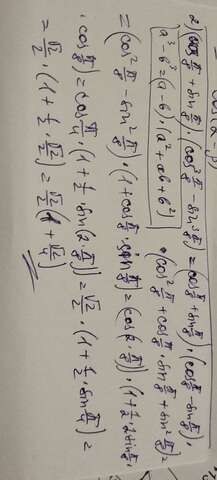 2) (cos π/8 + sin π/8) · (cos³ π/8 - sin³ π/8) = (cos π/8 + sin π/8) · (cos π/8 - sin π/8) ·
a³ - b³ = (a - b) · (a² + ab + b²)
· (cos² π/8 + cos π/8 · sin π/8 + sin² π/8) =
= (cos² π/8 - sin² π/8) · (1 + cos π/8 · sin π/8) = cos(2 · π/8) · (1 + 1/2 · 2 sin π/8 ·
· cos π/8) = cos π/4 · (1 + 1/2 · sin(2 · π/8)) = √2/2 · (1 + 1/2 · sin π/4) =
= √2/2 · (1 + 1/2 · √2/2) = √2/2 (1 + √2/4)